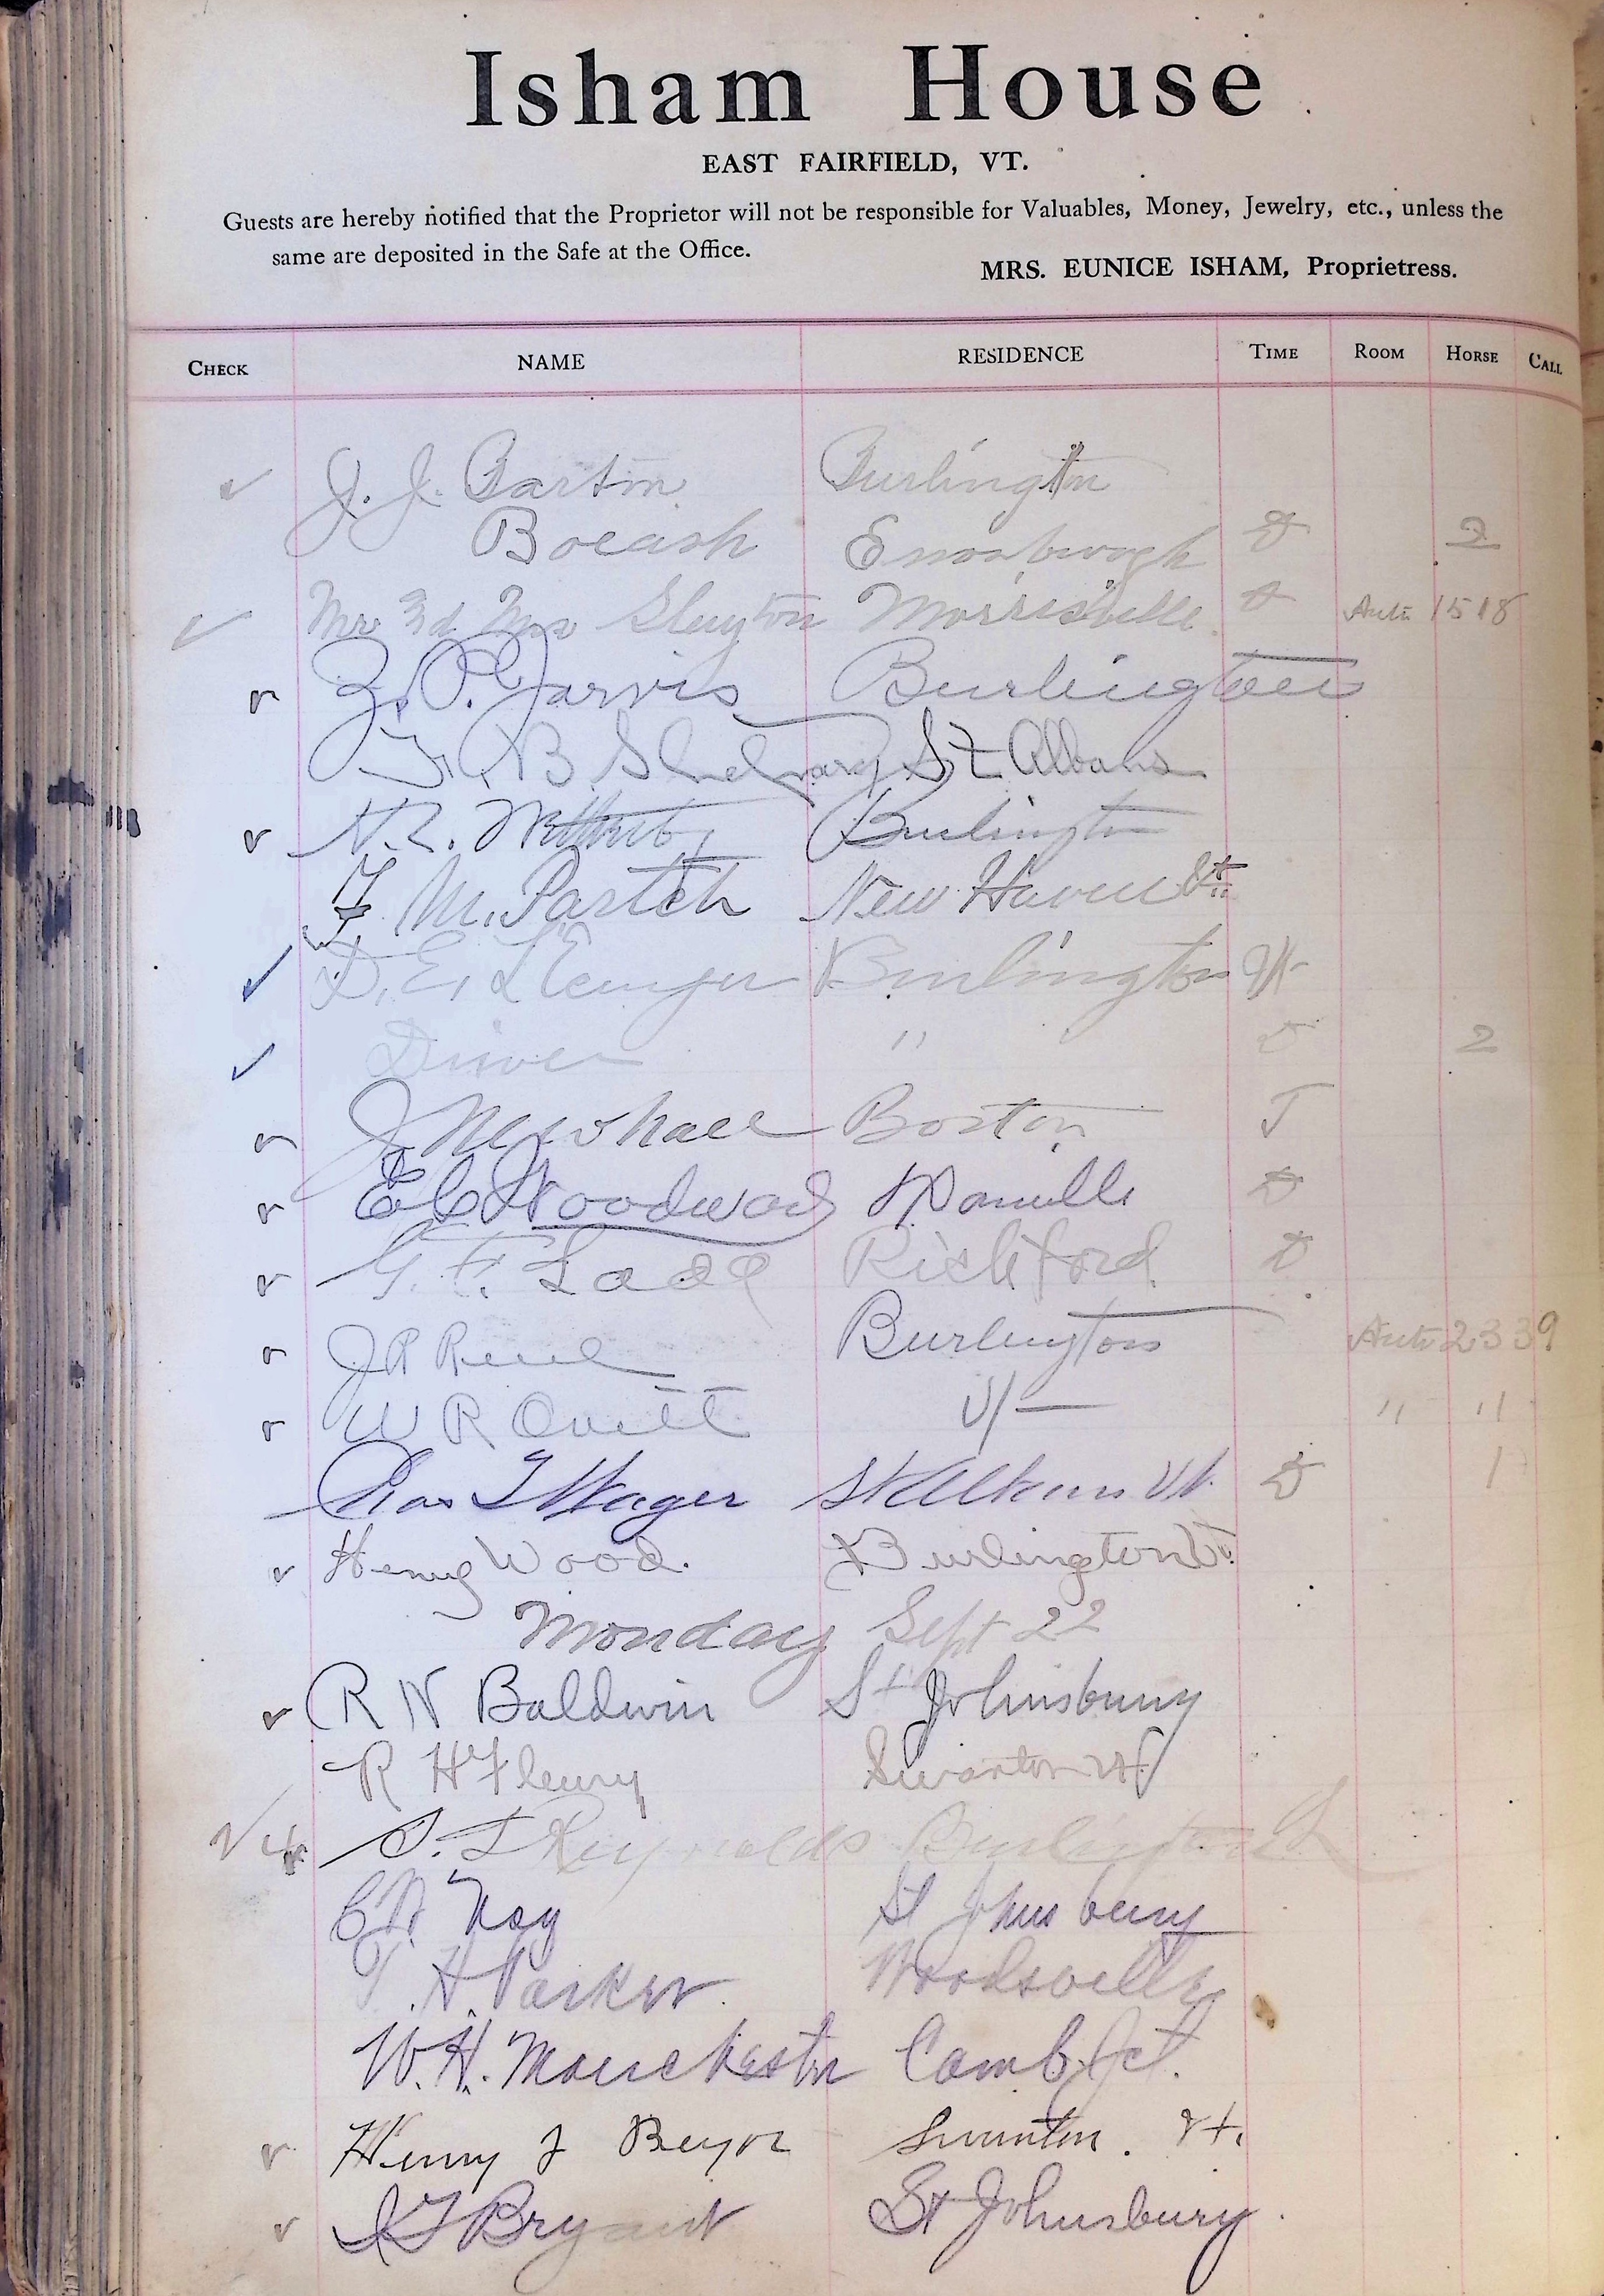 Isham House
EAST FAIRFIELD, VT.
Guests are hereby notified that the Proprietor will not be responsible for Valuables, Money, Jewelry, etc., unless the
same are deposited in the Safe at the Office.
MRS. EUNICE ISHAM, Proprietress.
CHECK NAME RESIDENCE TIME ROOM HORSE CALL
J. J. Barton Burlington
Enosburgh 2
Mr & Mrs Slayton Morrisville Auto 1518
Z. P. Jarvis Burlington
B St Albans
Burlington
F. M. Partch New Haven Vt.
D. E. Burlington Vt
Driver " 2
J Newhall Boston T
E C Woodward
G. F. Ladd Richford
J R Burlington Auto 2339
W R Ovitt Vt " "
Chas Wager St Albans Vt. 1
Henry Wood. Burlington Vt.
Monday Sept 22
R N Baldwin St Johnsbury
R H Fleury Swanton Vt
S. L Reynolds Burlington
C N St Johnsbury
T. H. Parker Woodsville
W. H. Manchester Camb Jct.
Henry J Beyor Swanton. Vt.
Bryant St Johnsbury.